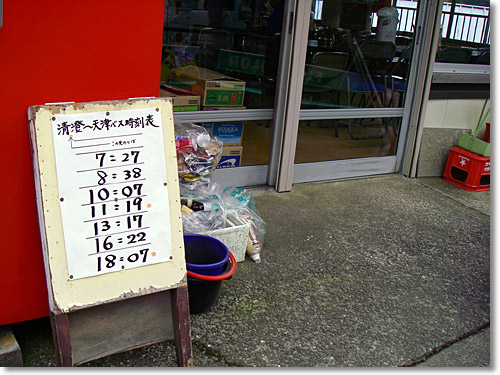 清澄〜天津バス時刻表
7:27
8:38
10:07
11:19
13:17
16:22
18:07